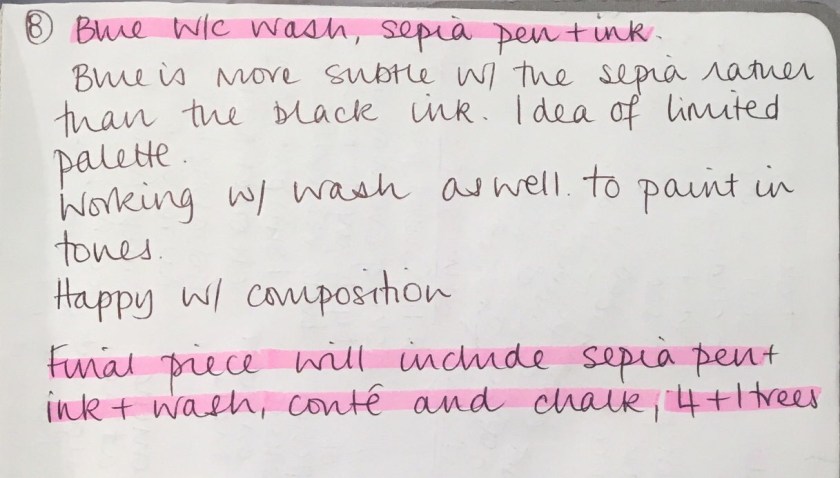 ⑧ Blue w/c wash, sepia pen + ink.
Blue is more subtle w/ the sepia rather
than the black ink. Idea of limited
palette.
Working w/ wash as well. to paint in
tones.
Happy w/ composition
Final piece will include sepia pen +
ink + wash, conté and chalk, 4+1 trees